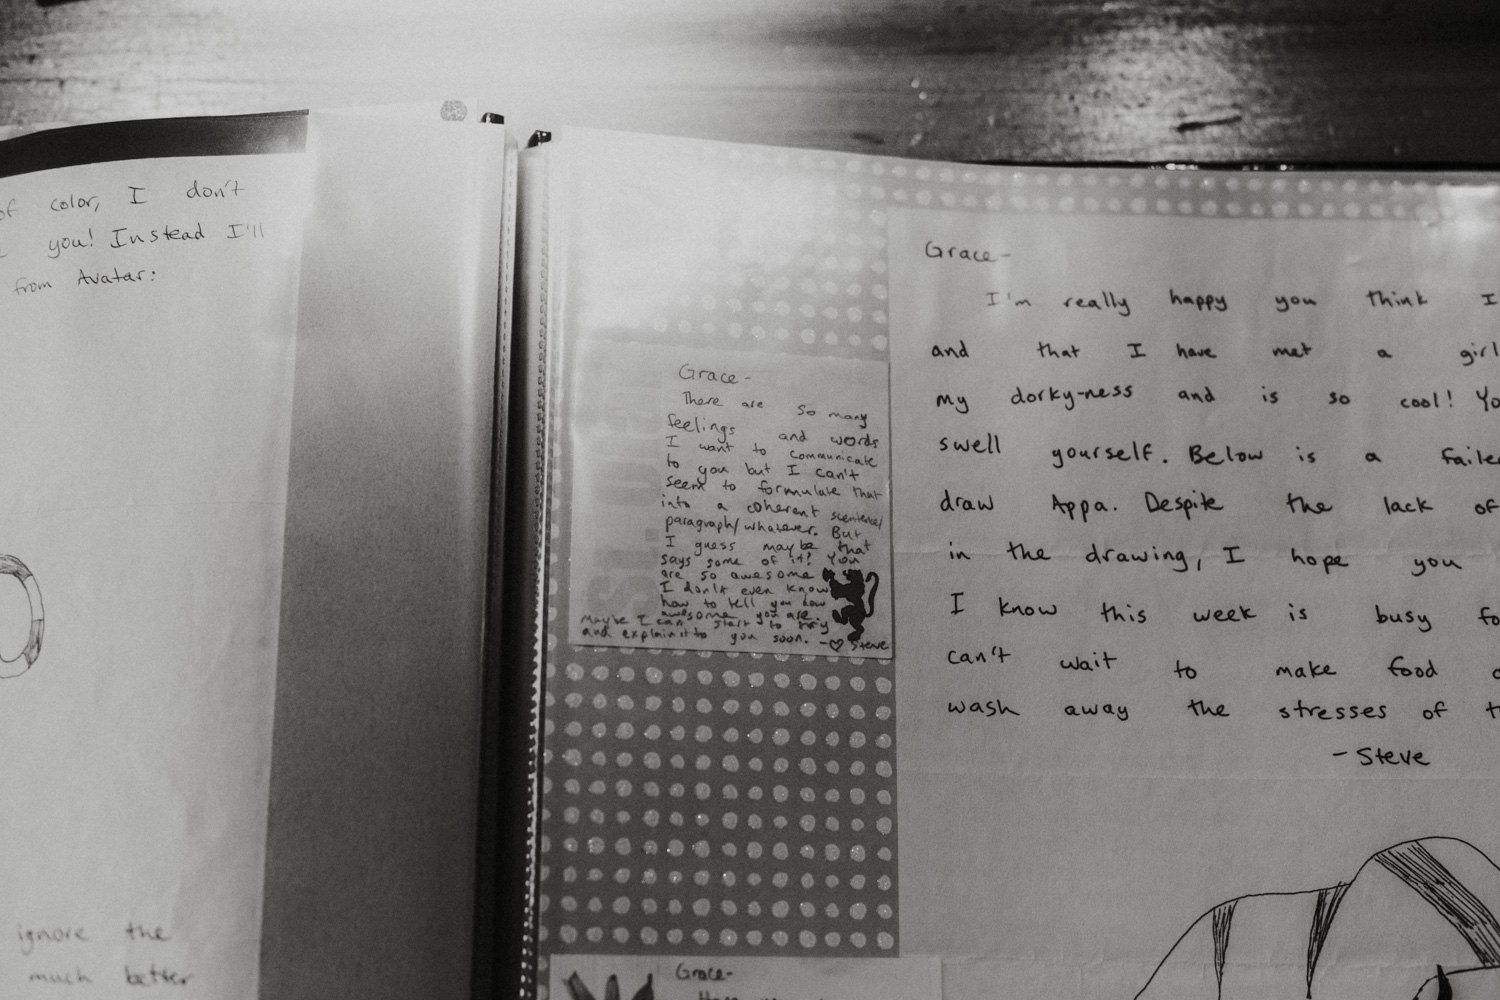 of color, I don't
you! Instead I'll
from Avatar:
ignore the
much better
Grace-
There are so many
feelings and words
I want to communicate
to you but I can't
seem to formulate that
into a coherent
paragraph/whatever. But
I guess maybe that
says some of it! You
are so awesome
I don't even know
how to tell you how
awesome you are.
Maybe I can start to try
and explain it to you soon. -♡ Steve
Grace-
Grace-
I'm really happy you think I
and that I have met a girl
my dorky-ness and is so cool! Yo
swell yourself. Below is a faile
draw Appa. Despite the lack of
in the drawing, I hope you
I know this week is busy fo
can't wait to make food
wash away the stresses of t
- Steve